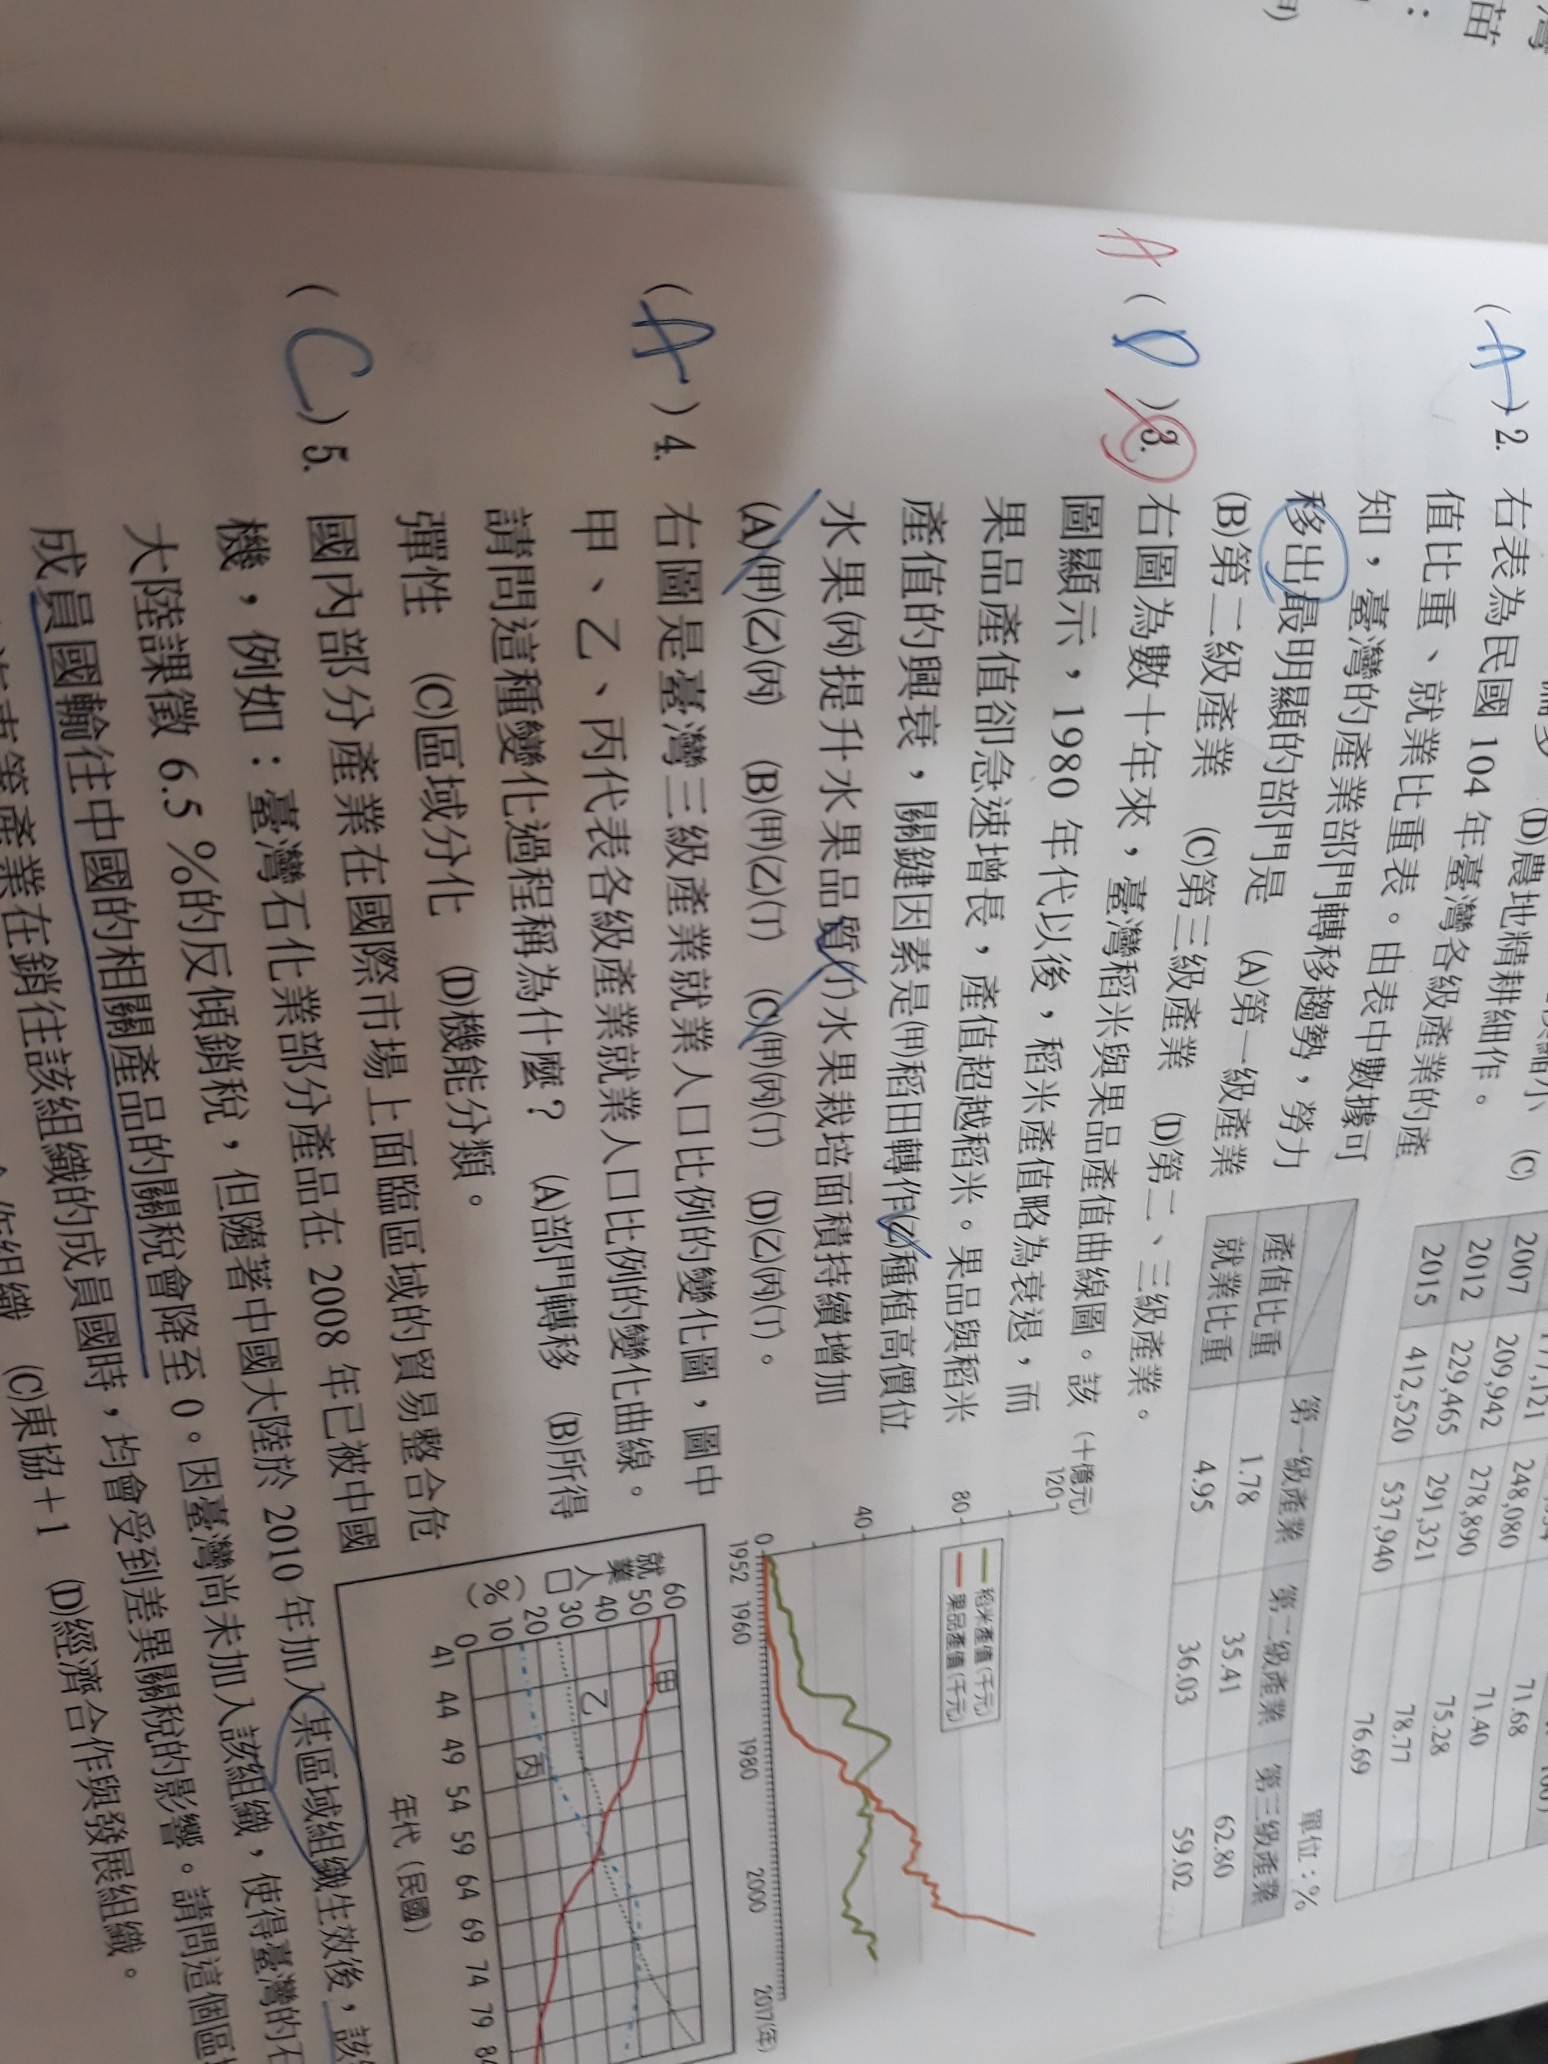 灣
苗
：
2007 177,121 248,080 71.68
2012 209,942 278,890 71.40
2015 229,465 291,321 75.28
412,520 537,940 78.77
76.69
(D)農地精耕細作。
(C)
( A ) 2. 右表為民國 104 年臺灣各級產業的產
值比重、就業比重表。由表中數據可
知，臺灣的產業部門轉移趨勢，勞力
移出最明顯的部門是 (A)第一級產業
(B)第二級產業 (C)第三級產業 (D)第二、三級產業。
單位：%
第一級產業 第二級產業 第三級產業
產值比重 1.78 35.41 62.80
就業比重 4.95 36.03 59.02
A ( D ) 3. 右圖為數十年來，臺灣稻米與果品產值曲線圖。該
圖顯示，1980 年代以後，稻米產值略為衰退，而
果品產值卻急速增長，產值超越稻米。果品與稻米
產值的興衰，關鍵因素是(甲)稻田轉作(乙)種植高價位
水果(丙)提升水果品質(丁)水果栽培面積持續增加
(A)(甲)(乙)(丙) (B)(甲)(乙)(丁) (C)(甲)(丙)(丁) (D)(乙)(丙)(丁)。
(十億元)
120
80
40
0
稻米產值(千元)
果品產值(千元)
1952 1960 1980 2000 2017(年)
( A ) 4. 右圖是臺灣三級產業就業人口比例的變化圖，圖中
甲、乙、丙代表各級產業就業人口比例的變化曲線。
請問這種變化過程稱為什麼？ (A)部門轉移 (B)所得
彈性 (C)區域分化 (D)機能分類。
就業人口(%)
60
50
40
30
20
10
0
甲
乙
丙
41 44 49 54 59 64 69 74 79 84
年代（民國）
( C ) 5. 國內部分產業在國際市場上面臨區域的貿易整合危
機，例如：臺灣石化業部分產品在 2008 年已被中國
大陸課徵 6.5 %的反傾銷稅，但隨著中國大陸於 2010 年加入某區域組織生效後，該
成員國輸往中國的相關產品的關稅會降至 0。因臺灣尚未加入該組織，使得臺灣的石
產業在銷往該組織的成員國時，均會受到差異關稅的影響。請問這個區
作組織 (C)東協＋1 (D)經濟合作與發展組織。